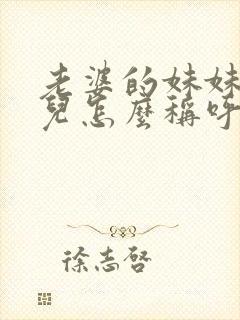 老婆的妹妹
兒怎麼稱呼
徐志啓